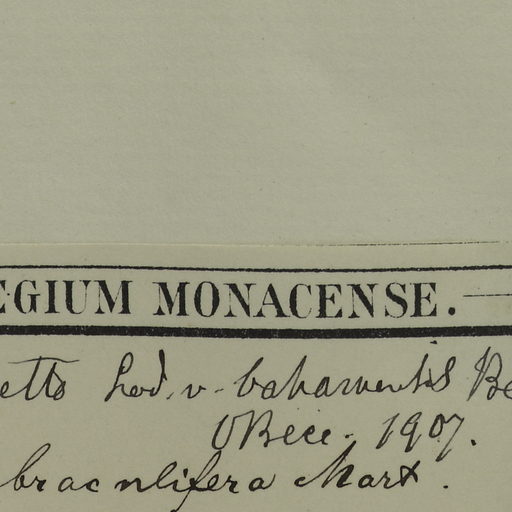 EGIUM MONACENSE.
etto Lod. v. bahamensis Be
O Becc. 1907.
bracnlifera Mart.